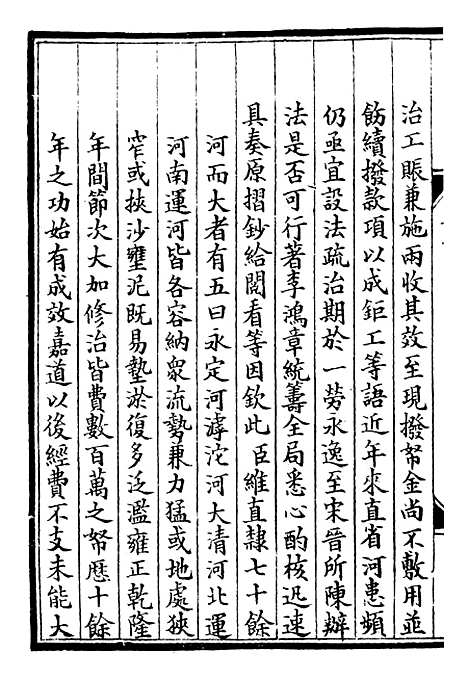 治工賑兼施兩收其效至現撥帑金尚不敷用並
飭續撥款項以成鉅工等語近年來直省河患頻
仍亟宜設法疏治期於一勞永逸至宋晉所陳辦
法是否可行著李鴻章統籌全局悉心酌核迅速
具奏原摺鈔給閱看等因欽此臣維直隸七十餘
河而大者有五曰永定河滹沱河大清河北運
河南運河皆各容納衆流勢兼力猛或地處狹
窄或挾沙壅泥既易墊淤復多泛濫雍正乾隆
年間節次大加修治皆費數百萬之帑歷十餘
年之功始有成效嘉道以後經費不支未能大